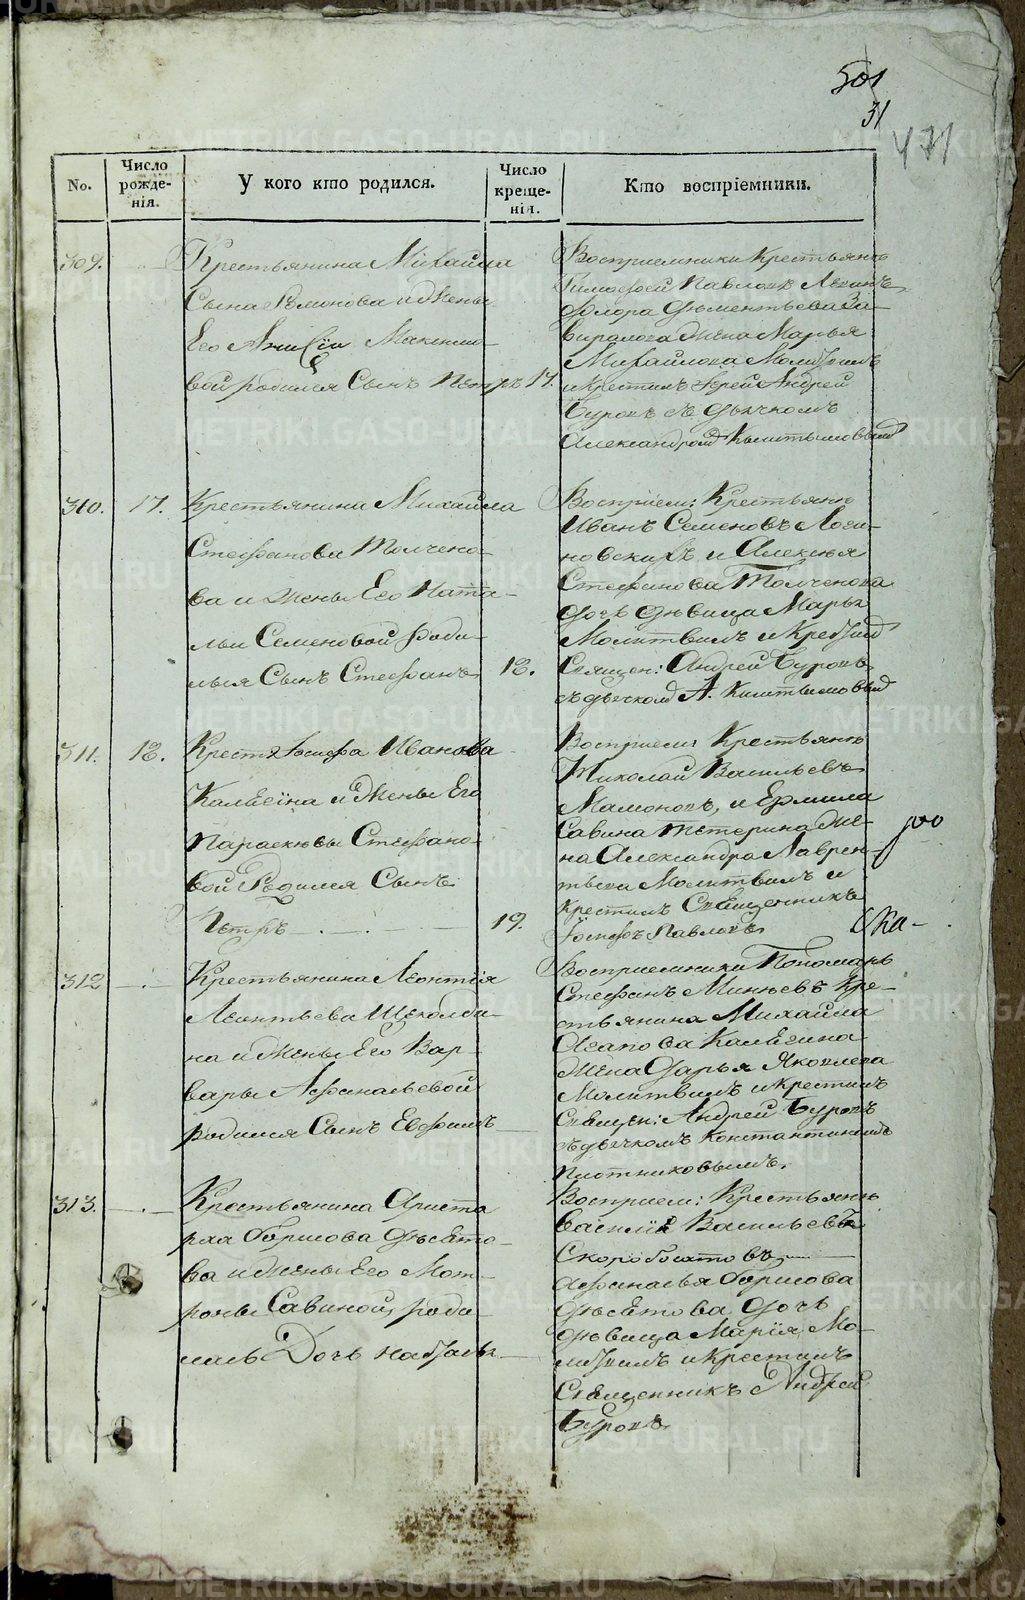 501
31
431
No.
Число рожде-нія.
У кого кто родился.
Число креще-нія.
Кто воспріемники.
309.
Крестьянина Михайла
Сына и жены
Его Максимо-
вой родился Сынъ Петръ 17.
Восприемники Крестьянъ
Тимофей Павловъ
Флора Дементьева За-
жена Марья
Михайлова Молитвилъ
и Крестилъ Іерей Андрей
Буровъ съ дьячкомъ
Александромъ Кыштымовымъ
310. 17. Крестьянина Михайла
Стефанова Толчено-
ва и жены Его Ната-
льи Семеновой роди-
лься Сынъ Стефанъ 18.
Воспріем: Крестьянъ
Иванъ Семеновъ Логи-
новскихъ и Алексѣя
Стефанова Толченова
дочь дѣвица Марья
Молитвилъ и Крестилъ
Священ: Андрей Буровъ
съ дьячком А. Кыштымовым
311. 18. Крестья Іосифа Иванова
и жены Его
Параскевы Стефано-
вой Родился Сынъ
Петръ 19.
Восприем: Крестьянъ
Николай Васильевъ
Мамоновъ, и Ермила
Савина Тетерина же-
на Александра Лаврен-
тьева Молитвилъ и
крестилъ Священникъ
Іосифъ Павловъ
Ска-
312 Крестьянина Леонтія
Леонтьева Щеколди-
на и жены Его Вар-
вары Афанасьевой
родился Сынъ Ефимъ
Восприемники Пономарь
Стефанъ Минѣевъ Кре-
стьянина Михайла
Агапова
жена Дарья Яковлева
Молитвилъ и крестилъ
Священ: Андрей Буровъ
съ дьячкомъ Константиномъ
Плотниковымъ.
313. Крестьянина Ариста
рха Борисова
ва и жены Его Мот-
роны Савиной роди
лась Дочь Наталья
Восприем: Крестьянъ
Василій Васильевъ
Скоробогатовъ
Афанасья Борисова
дочь
дѣвица Марія Мо-
литвилъ и Крестилъ
Священникъ Андрей
Буровъ
METRIKI.GASO-URAL.RU